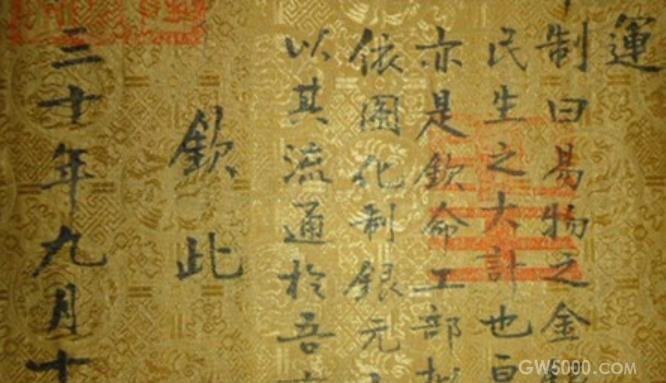 運
制曰易物之金
民生之大計也
亦是欽命工部
依圖化制銀元
以其流通於吾
欽此
三十年九月十
GW5000.COM